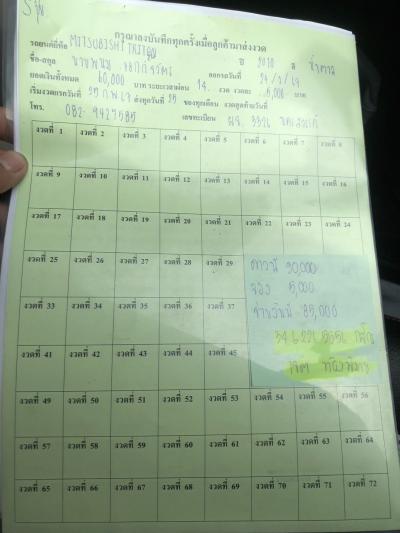 กรุณาลงบันทึกทุกครั้งเมื่อลูกค้ามาส่งงวด
รถยนต์ยี่ห้อ MITSUBISHI TRITON ปี 2010 สี น้ำตาล
ชื่อ-สกุล ออกรถวันที่ 24/1/69
ยอดเงินทั้งหมด 60,000 บาท ระยะเวลาผ่อน 14 งวด งวดละ 5,000 บาท
เริ่มงวดแรกวันที่ 25 ก.พ. 69 ส่งทุกวันที่ 25 ของทุกเดือน งวดสุดท้ายวันที่
โทร. 082-9427585 เลขทะเบียน ผจ 3326
งวดที่ 1 งวดที่ 2 งวดที่ 3 งวดที่ 4 งวดที่ 5 งวดที่ 6 งวดที่ 7 งวดที่ 8
งวดที่ 9 งวดที่ 10 งวดที่ 11 งวดที่ 12 งวดที่ 13 งวดที่ 14 งวดที่ 15 งวดที่ 16
งวดที่ 17 งวดที่ 18 งวดที่ 19 งวดที่ 20 งวดที่ 21 งวดที่ 22 งวดที่ 23 งวดที่ 24
งวดที่ 25 งวดที่ 26 งวดที่ 27 งวดที่ 28 งวดที่ 29
ดาวน์ 90,000
จอง 5,000
จ่ายวันนี้ 85,000
งวดที่ 33 งวดที่ 34 งวดที่ 35 งวดที่ 36 งวดที่ 37
งวดที่ 41 งวดที่ 42 งวดที่ 43 งวดที่ 44 งวดที่ 45
งวดที่ 49 งวดที่ 50 งวดที่ 51 งวดที่ 52 งวดที่ 53 งวดที่ 54 งวดที่ 55 งวดที่ 56
งวดที่ 57 งวดที่ 58 งวดที่ 59 งวดที่ 60 งวดที่ 61 งวดที่ 62 งวดที่ 63 งวดที่ 64
งวดที่ 65 งวดที่ 66 งวดที่ 67 งวดที่ 68 งวดที่ 69 งวดที่ 70 งวดที่ 71 งวดที่ 72